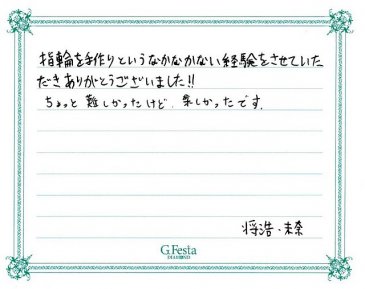 指輪を手作りというなかなかない経験をさせていた
だきありがとうございました!!
ちょっと難しかったけど、楽しかったです。
将浩・未奈
G.Festa
DIAMOND